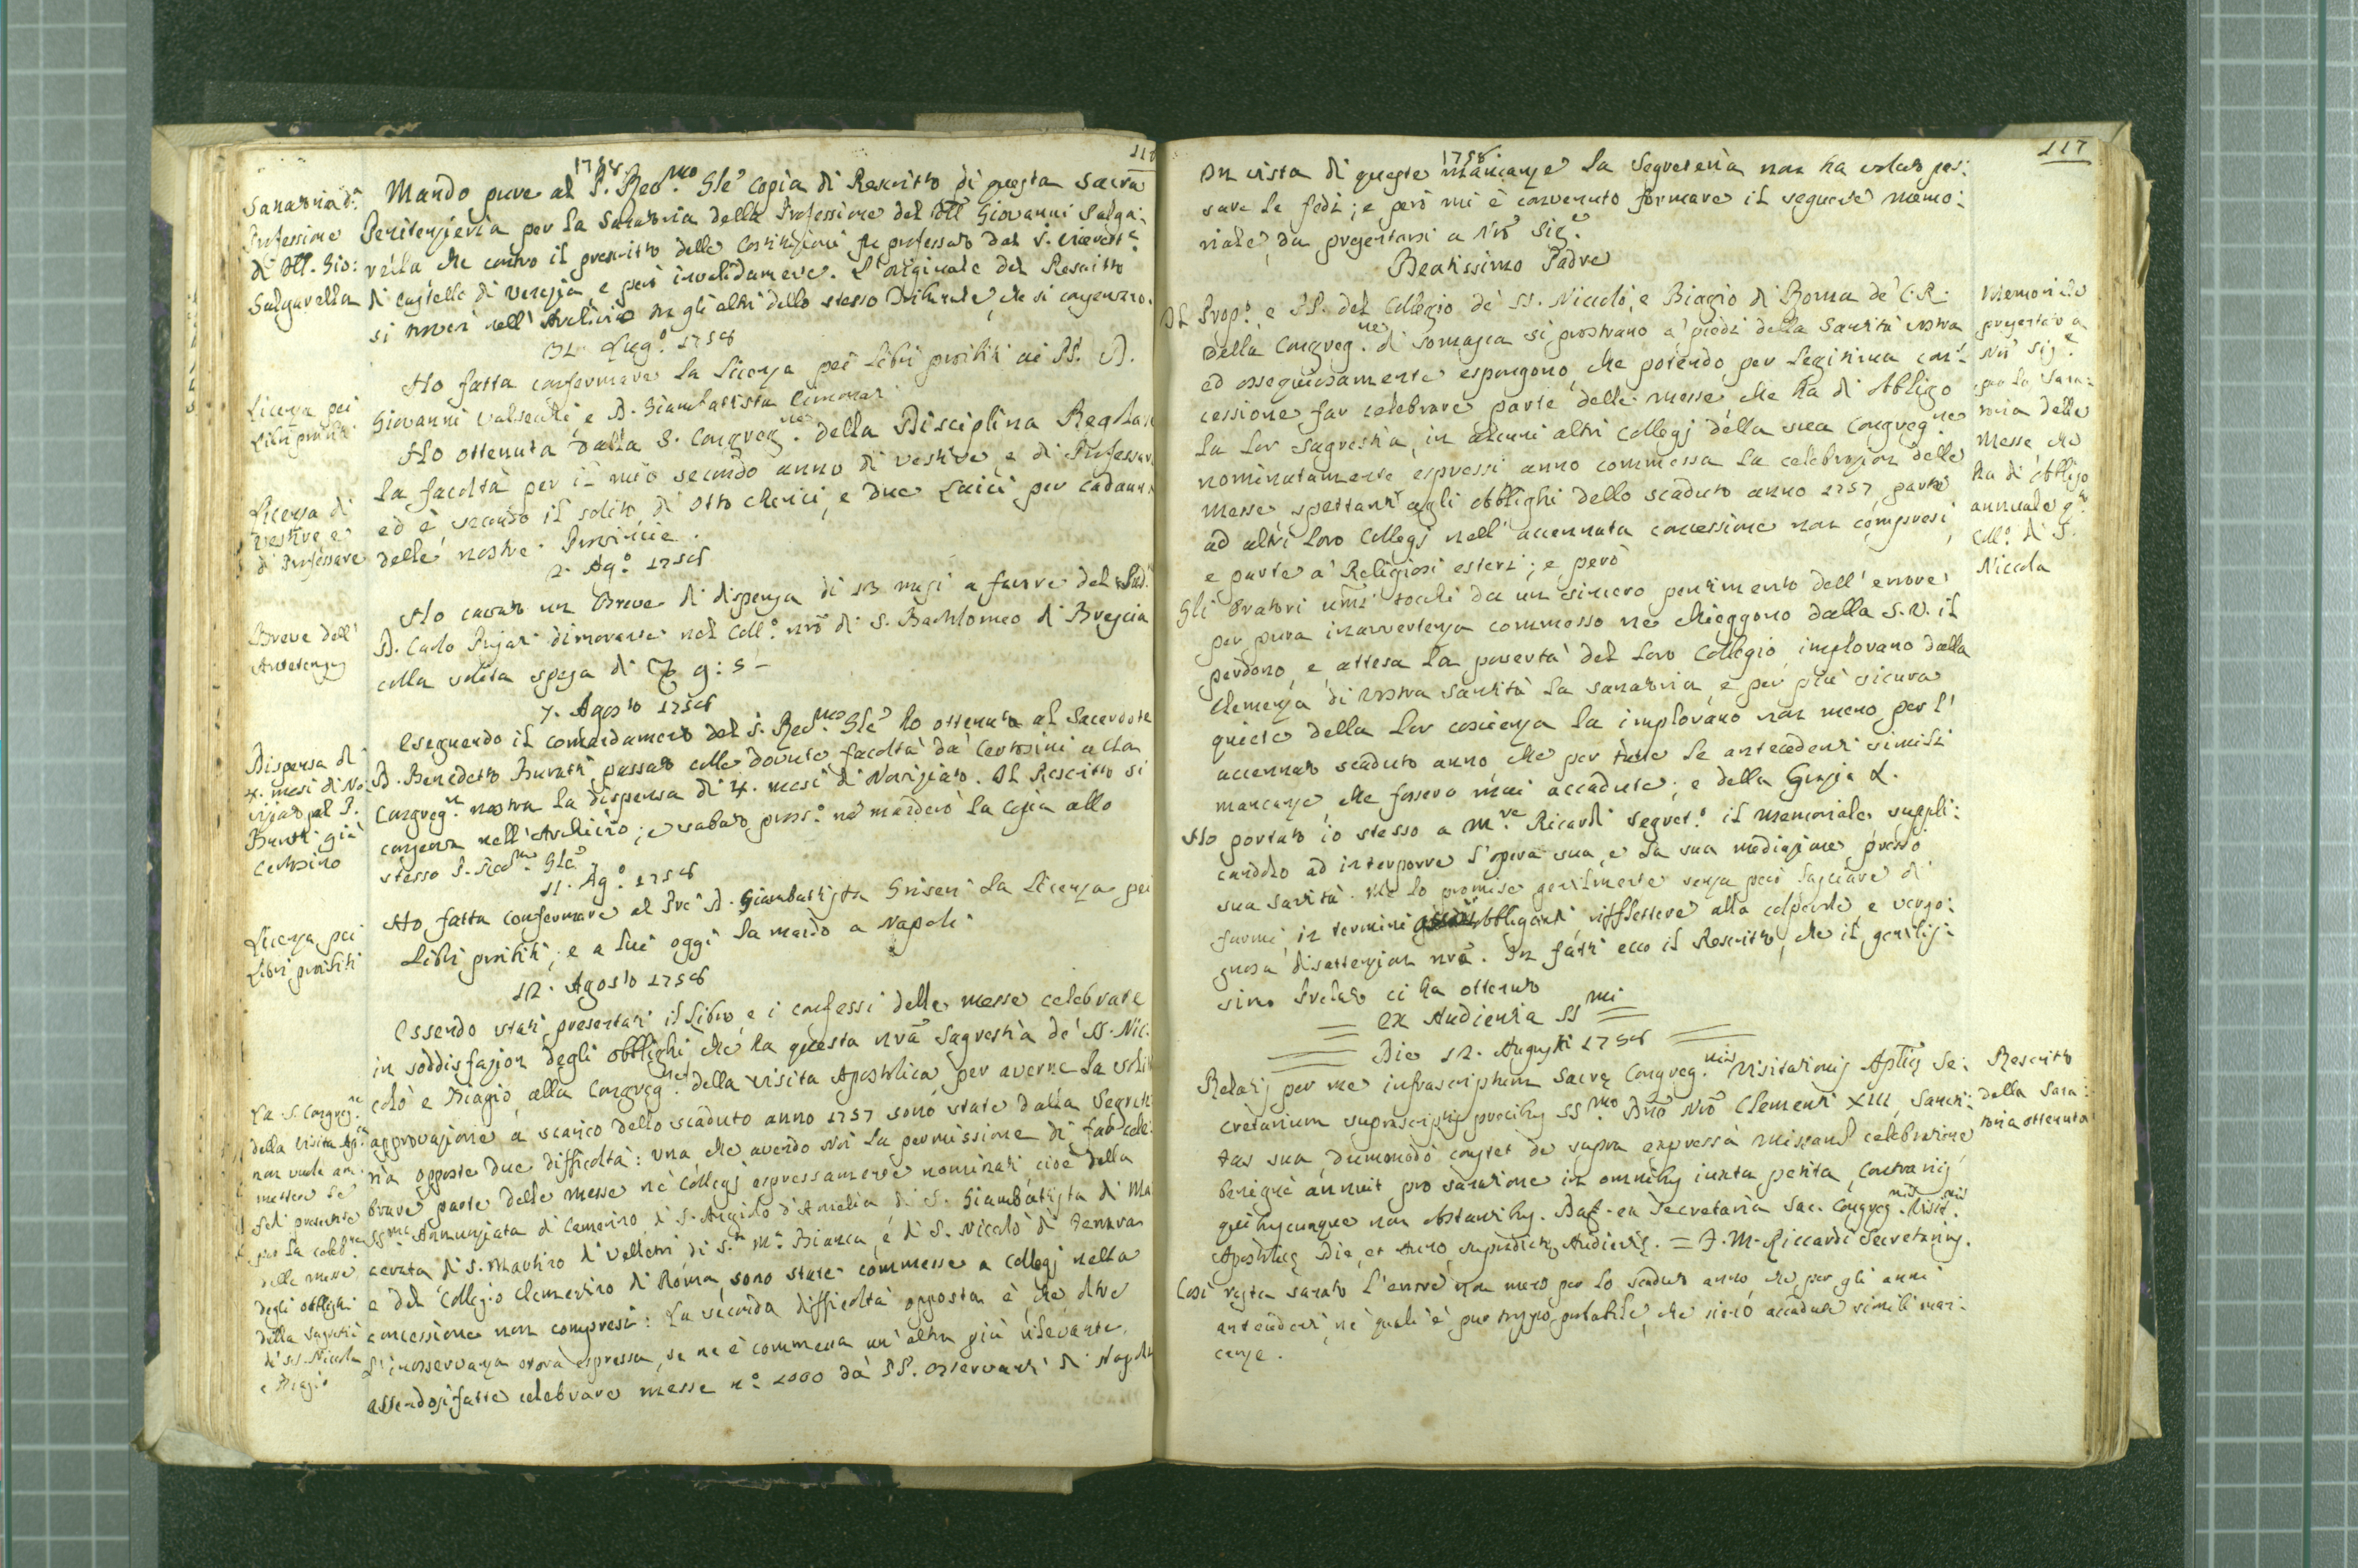 1758.
Mando pure al P. Rev.mo Gle copia di Rescritto di questa Sacra
Penitenzieria per la Sanatoria della Professione del Giovanni Salga:
rella che contro il prescritto delle Costituzioni fu professato dal
di Castello di Venezia, e però invalidamente. L'originale del Rescritto
si trova nell'Archivio tra gli altri dello stesso Tribunale, che si conservano.
Sanatoria d.a
Professione
di Gio:
Salgarella
31. Lug.o 1758
Ho fatta confermare la licenza pei libri proibiti ai PP. D.
Giovanni Valsecchi, e D. Giambattista
Licenza pei
Libri proibiti
Ho ottenuta dalla S. Congreg.ne della Disciplina Regolare
la facoltà per il mio secondo anno di vestire, e di Professare
ed è secondo il solito di otto Chierici, e due Laici per cadauna
delle nostre Provincie.
Licenza di
vestire e
di Professare
2. Ag.o 1758
Ho cavato un Breve di dispensa di 13 mesi a favore del
D. Carlo Pujati dimorante nel Coll.o nro di S. Bartolomeo di Brescia
colla solita spesa di 9: 5 -
Breve dell'
7. Agosto 1758
Eseguendo il comandamento del P. Rev.mo Gle ho ottenuta al Sacerdote
D. Benedetto Buratti, passato colle dovute facoltà da' Certosini alla
Congreg.ne nostra la dispensa di 4. mesi di Noviziato. Il Rescritto si
conserva nell'Archivio; e sabato pross.o ne manderò la copia allo
stesso P. Rev.mo Gle
Dispensa di
4. mesi di No:
viziato al P.
Buratti già
Certosino
11. Ag.o 1758
Ho fatta confermare al Pre D. Giambattista Griseri la licenza pei
Libri proibiti; e a lui oggi la mando a Napoli
Licenza pei
Libri proibiti
12. Agosto 1758
Essendo stati presentati il Libro, e i confessi delle messe celebrate
in soddisfazion degli obblighi, che ha questa nra Sagrestia de' SS. Nic:
colò e Biagio, alla Congreg.ne della visita Apostolica per averne la solita
approvazione a scarico dello scaduto anno 1757 sono state dalla Segrete
ria opposte due difficoltà: una che avendo Noi la permissione di far cele:
brare parte delle messe ne' Collegj espressamente nominati cioè della
SS.ma Annunziata di Camerino, di S. Angelo d'Amelia di S. Giambatista di Ma
cerata di S. Martino di Velletri di S.ta M.a Bianca, e di S. Niccolò di Ferrara
e del Collegio Clementino di Roma, sono state commesse a Collegj nella
concessione non compresi: La seconda difficoltà opposta è che oltre
l'inosservanza ora espressa, se ne è commessa un'altra più rilevante,
essendosi fatte celebrare messe n.o 1000 da' PP. Osservanti di Napoli
La S. Congreg.ne
della Visita Ap.ca
non vuole am:
mettere le
fedi presentate
per la celeb.ne
delle messe
degli obblighi
della Sagrestia
di SS. Niccola
e Biagio
117
1758.
In vista di queste mancanze la Segreteria non ha voluto pas:
sare le fedi; e però mi è convenuto formare il seguente memo:
riale, da presentarsi a Nro Sig.e
Beatissimo Padre
Il Prop.o, e PP. del Collegio de' SS. Niccolò, e Biagio di Roma de' C. R.
della Congreg.ne di Somasca si prostrano a' piedi della Santità vostra
ed ossequiosamente espongono, che potendo per legittima con:
cessione far celebrare parte delle messe che ha di obbligo
la lor Sagrestia, in alcuni altri collegj della sua Congreg.ne
nominatamente espressi anno commessa la celebrazion delle
messe spettanti agli obblighi dello scaduto anno 1757 parte
ad altri loro Collegj nell'accennata concessione non compresi,
e parte a' Religiosi esteri; e però
Gli Oratori umi tocchi da un sincero pentimento dell'errore
per pura inavvertenza commosso ne chieggono dalla S. V. il
perdono, e attesa la povertà del loro Collegio implorano dalla
clemenza di vostra Santità la sanatoria, e per più sicura
quiete della lor coscienza la implorano non meno per l'
accennato scaduto anno, che per tutte le antecedenti simili
mancanze, che fossero mai accadute; e della Grazia &.
Memoriale
presentato a
Nro Sig.e
per la Sana:
toria delle
Messe, che
ha di obbligo
annuale q.to
Coll.o di S.
Niccola
Ho portato io stesso a M.re Ricardi Segret.o il memoriale suppli:
candolo ad interporre l'opera sua, e la sua mediazione presso
sua santità. Me lo promise gentilmente senza però lasciare di
farmi, in termini obbliganti rifflettere alla colpevole, e vergo:
gnosa disattenzion nra. In fatti ecco il Rescritto, che il gentilis:
simo Prelato ci ha ottenuto
= Ex Audientia SSmi =
= Die 12. Augusti 1758 =
Relatis per me infrascriptum Sacrę Congreg.nis Visitationis Aplicę Se:
cretarium suprascriptis precibus SS.mo Dño Nrõ Clementi XIII, Sancti:
tas sua, dummodo constet de supra expressa missarum celebratione
benignè annuit pro sanatione in omnibus iuxta petita, Contrariis
quibuscunque non obstantibus. Dat. ex Secretaria Sac. Congreg.nis Visit.nis
Apostolicę Die, et Anno supradictę Audientię. = J. M. Riccardi Secretarius.
Rescritto
della Sana:
toria ottenuta
Così resta sanato l'errore non meno per lo scaduto anno, che per gli anni
antecedenti, ne' quali è pur troppo probabile, che sieno accadute simili man:
canze.